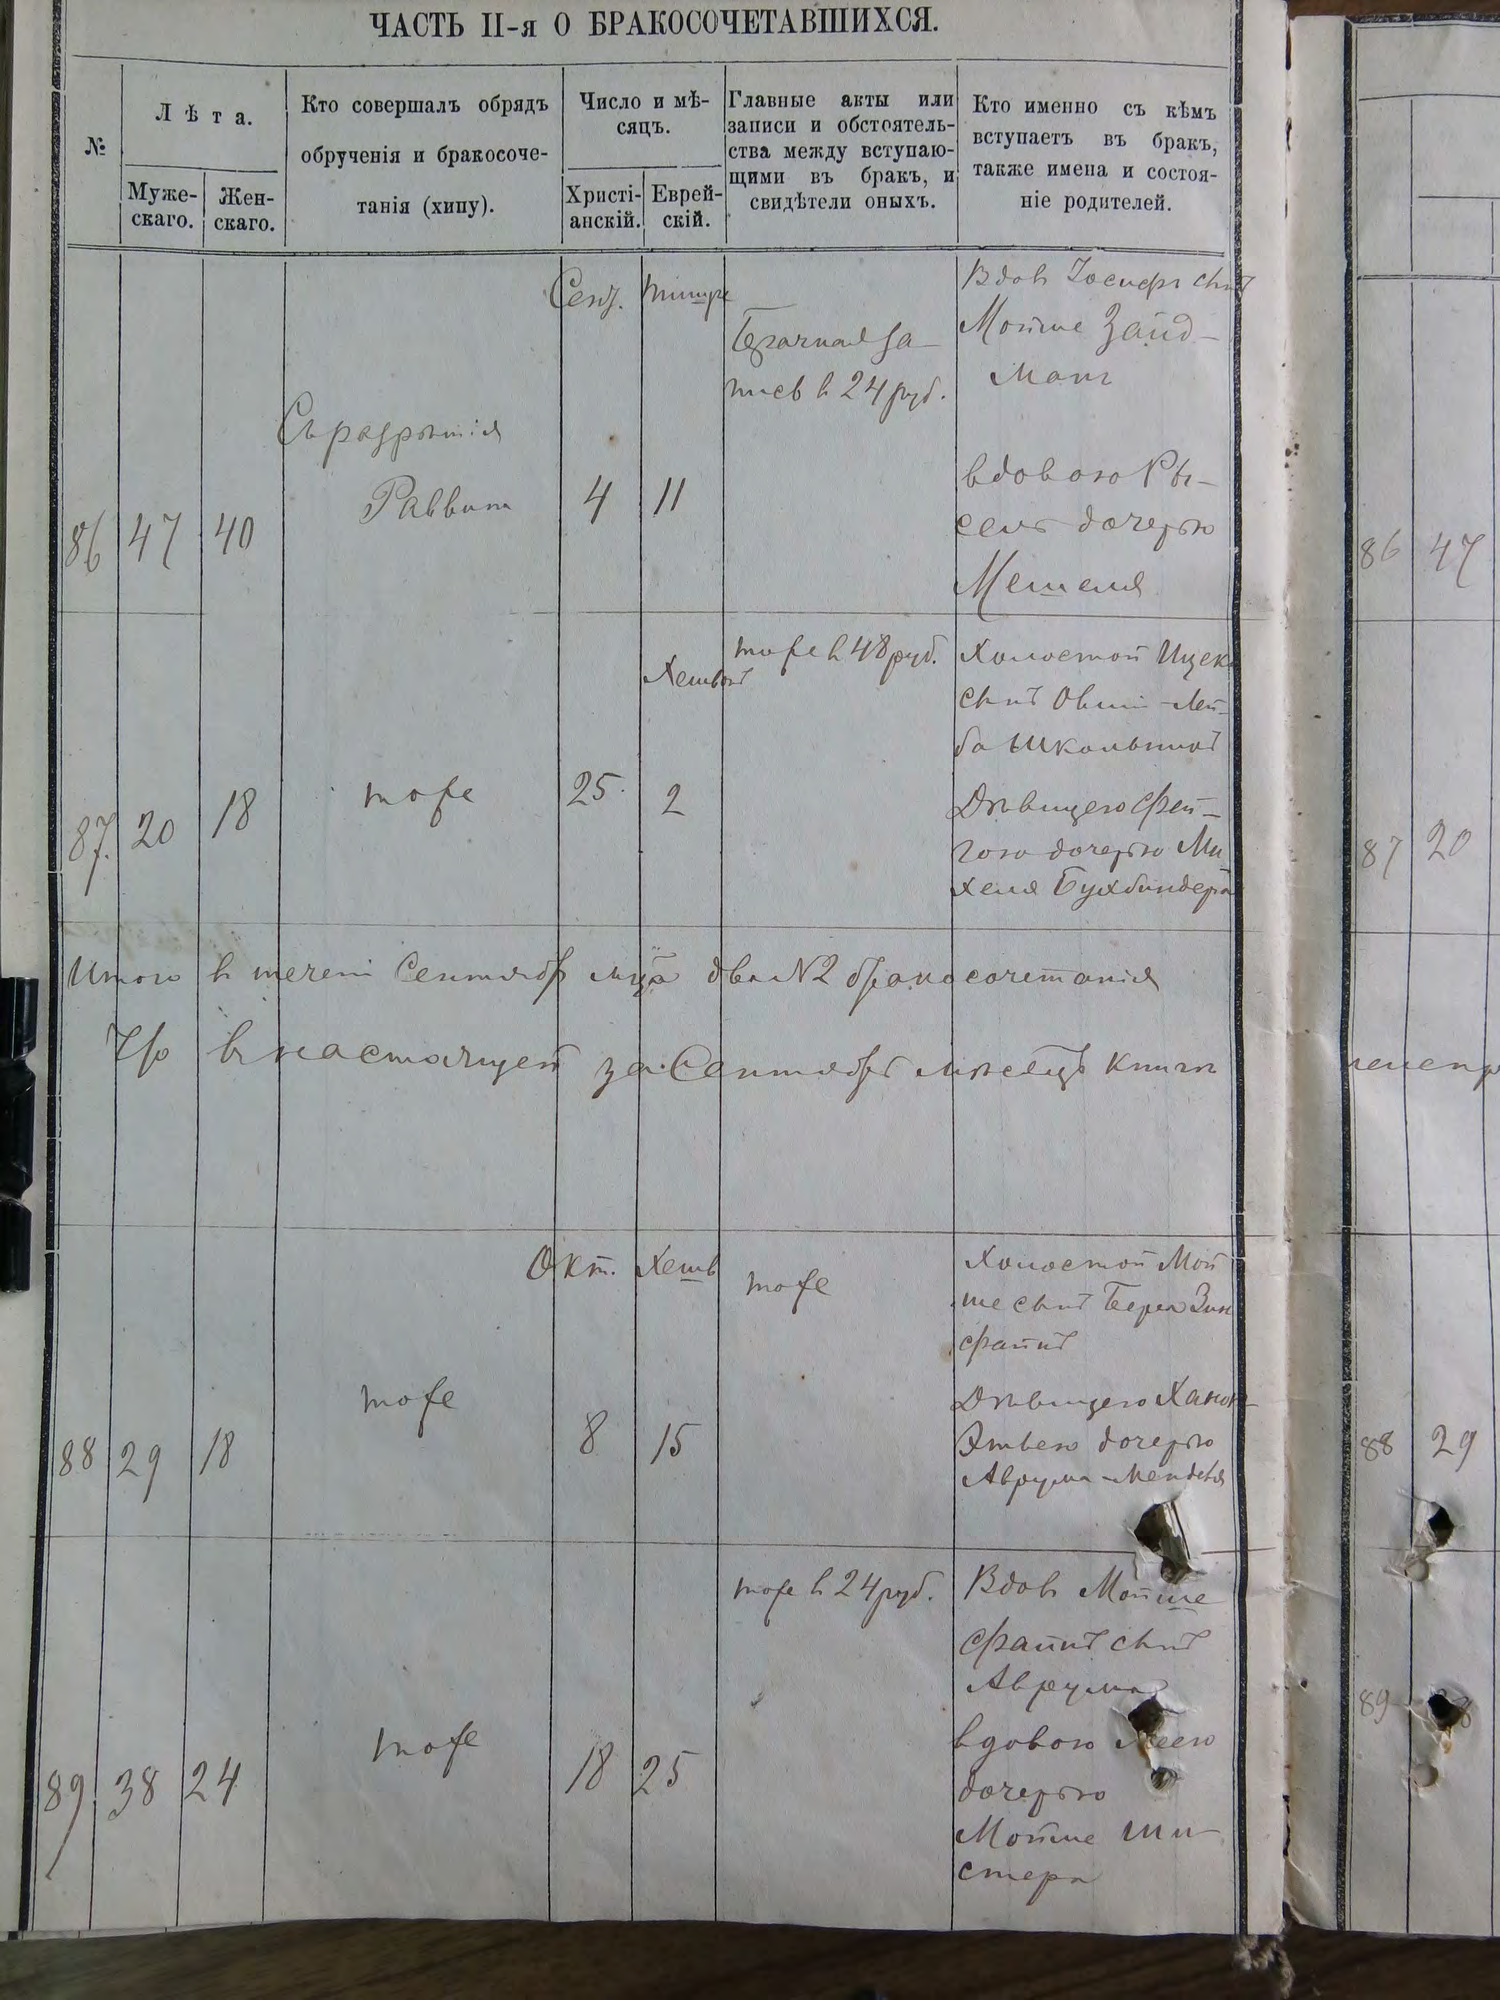 ЧАСТЬ II-я О БРАКОСОЧЕТАВШИХСЯ.
№
Лѣта.
Муже-
скаго.
Жен-
скаго.
Кто совершалъ обрядъ
обрученія и бракосоче-
танія (хипу).
Число и мѣ-
сяцъ.
Христі-
анскій.
Еврей-
скій.
Главные акты или
записи и обстоятель-
ства между вступаю-
щими въ бракъ, и
свидѣтели оныхъ.
Кто именно съ кѣмъ
вступаетъ въ бракъ,
также имена и состоя-
ніе родителей.
86
47
40
Съ разрѣшнія
Раввина
Сент.
4
Тишре
11
Брачная за-
пись в 24 руб.
Вдовъ Іосифъ сынъ
Мойше Зайд-
манъ
вдовою Ры-
сель дочерью
Мешеля
87.
20
18
тоже
25.
Хешван
2
тоже в 48 руб.
Холостой Ицекъ
сынъ Овши-Лей-
ба Школьникъ
Дѣвицею Фей-
гою дочерью Ми-
хеля Бухбиндера
Итого в течені Сентябр мца два N2 бракосочетанія
Что в настоящей за Сентябрь мѣсяцъ книгѣ
88
29
18
тоже
Окт.
8
Хешв
15
тоже
Холостой Мой
ше сынъ Берка Зин
Дѣвицею Ханою
Этлею дочерью
Аврума-Менделя
89
38
24
тоже
18
25
тоже в 24 руб.
Вдовъ Мойше
сынъ
Аврума
вдовою Леею
дочерью
Мойше Ши-
стера
86
47
87
20
88
29
89